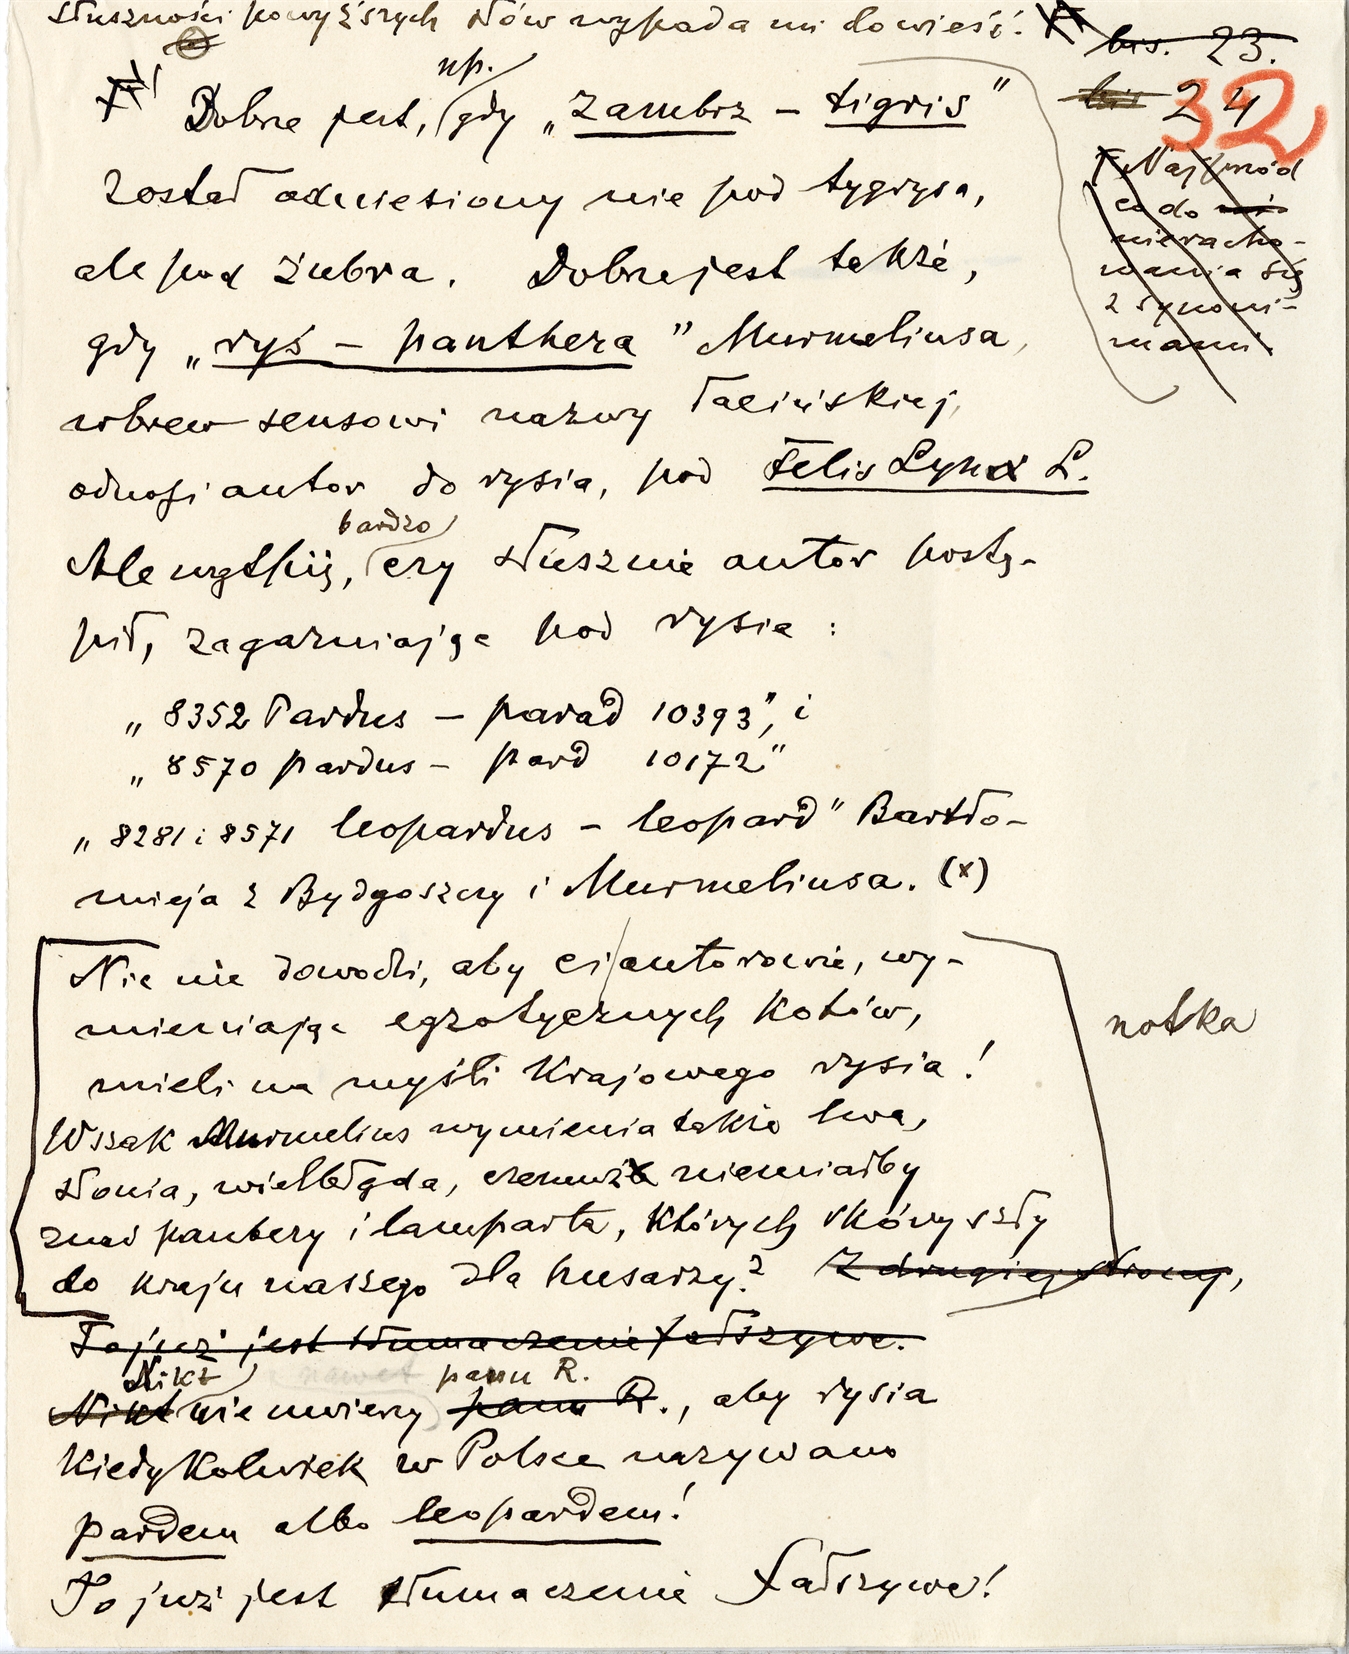 słuszności powyższych słów wypada mi dowieść.
bis. 23.
bis 24
32
np.
Dobrze jest, gdy „Zambrz – tigris"
został odniesiony nie pod tygrysa,
ale pod żubra. Dobrze jest także,
gdy „ryś – panthera" Murmeliusa,
wbrew sensowi nazwy łacińskiej,
odnosi autor do rysia, pod Felis Lynx L.
bardzo
Ale wątpię, czy słusznie autor postą-
pił, zagarniając pod rysia :
„8352 Pardus – parad 10393", i
„8570 pardus – pard 10172"
„8281 i 8571 leopardus – leopard" Bartło-
mieja z Bydgoszczy i Murmeliusa. (x)
Nic nie dowodzi, aby ci autorowie, wy-
mieniając egzotycznych kotów,
mieli na myśli krajowego rysia!
Wszak Murmelius wymienia także lwa,
słonia, wielbłąda, czemuż niemiałby
znać pantery i lamparta, których skóry szły
do kraju naszego dla husarzy? Z drugiej strony,
To już jest tłumaczenie fałszywe.
Nikt nawet panu R.
Nikt nie uwierzy panu R., aby rysia
kiedykolwiek w Polsce nazywano
pardem albo leopardem!
To już jest tłumaczenie fałszywe!
Najprzód
co do nie
nieracho-
wania się
z synoni-
mami.
notka